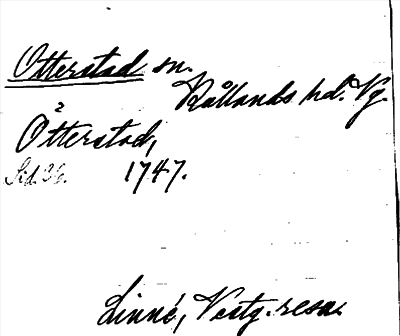 Otterstad sn.
Kållands hd. Vg.
2
Otterstad,
Sid. 26. 1747.
Linné, Vestg. resa.